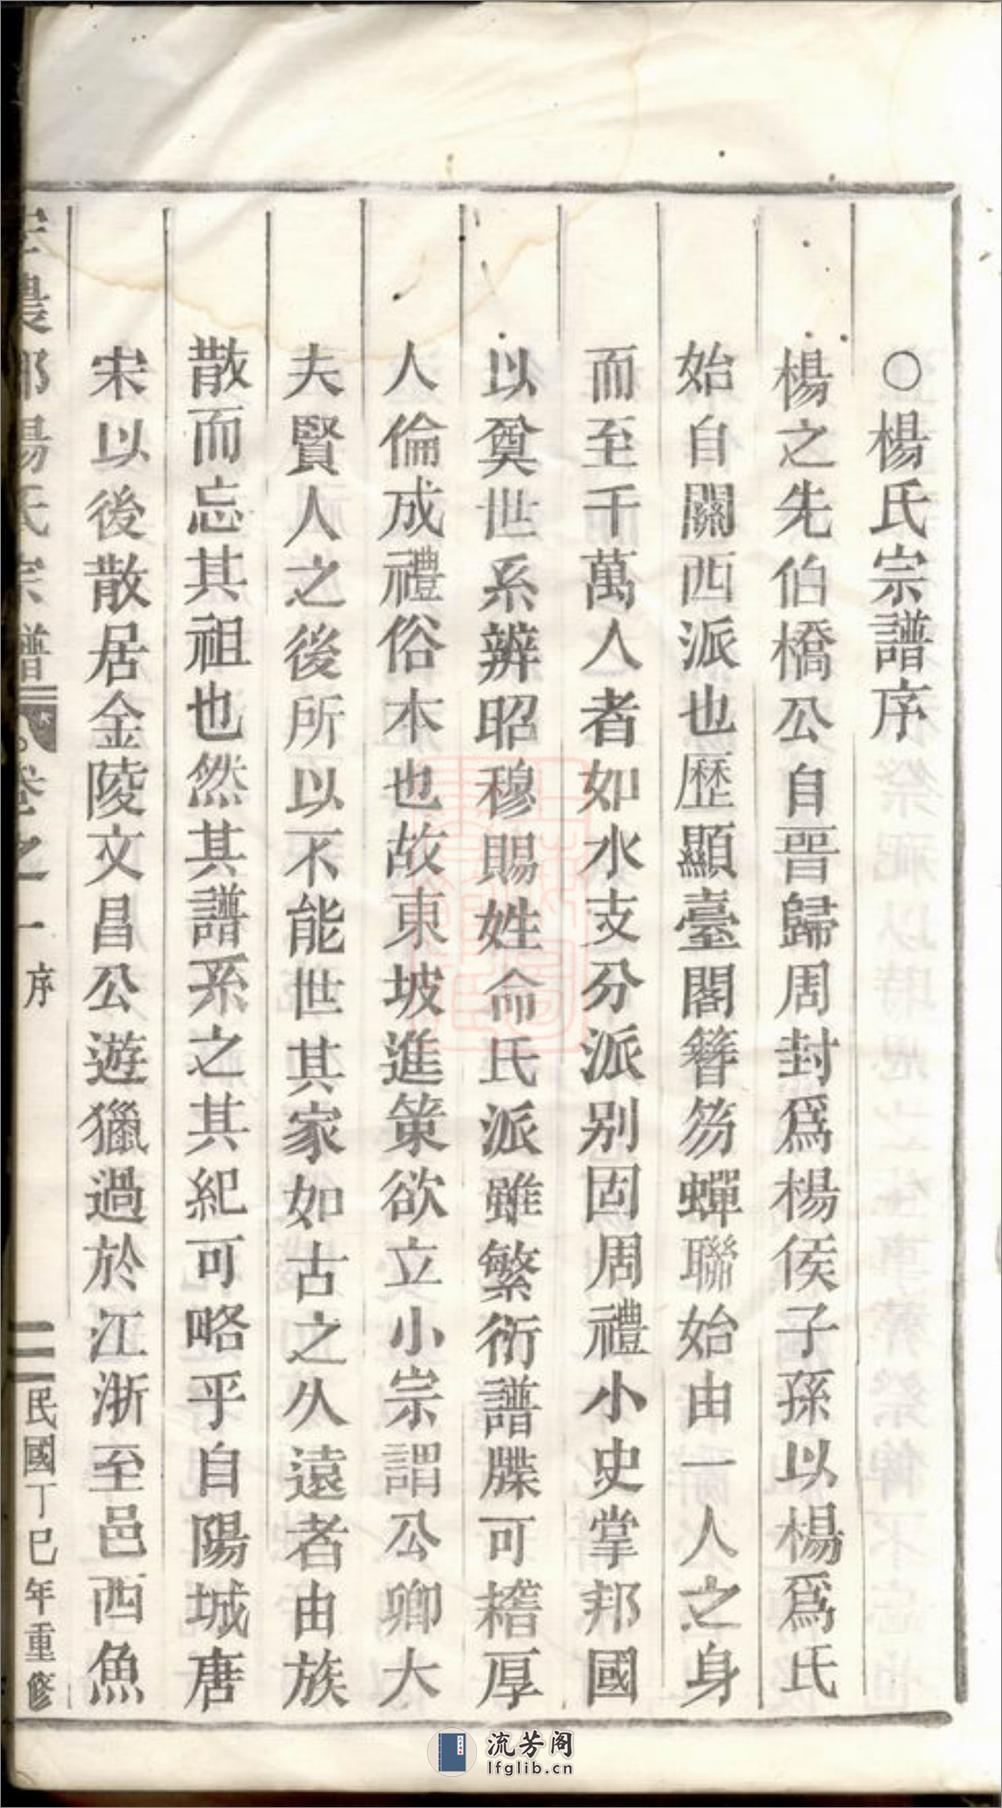 ○楊氏宗譜序
楊之先伯橋公自晉歸周封爲楊侯子孫以楊爲氏
始自關西派也歷顯臺閣簪笏蟬聯始由一人之身
而至千萬人者如水支分派别固周禮小史掌邦國
以奠世系辨昭穆賜姓命氏派雖繁衍譜牒可稽厚
人倫成禮俗本也故東坡進策欲立小宗謂公卿大
夫賢人之後所以不能世其家如古之久遠者由族
散而忘其祖也然其譜系之其紀可略乎自陽城唐
宋以後散居金陵文昌公遊獵過於江浙至邑西魚
農郡楊氏宗譜 卷之一 序 民國丁巳年重修
流芳阁
lfglib.cn